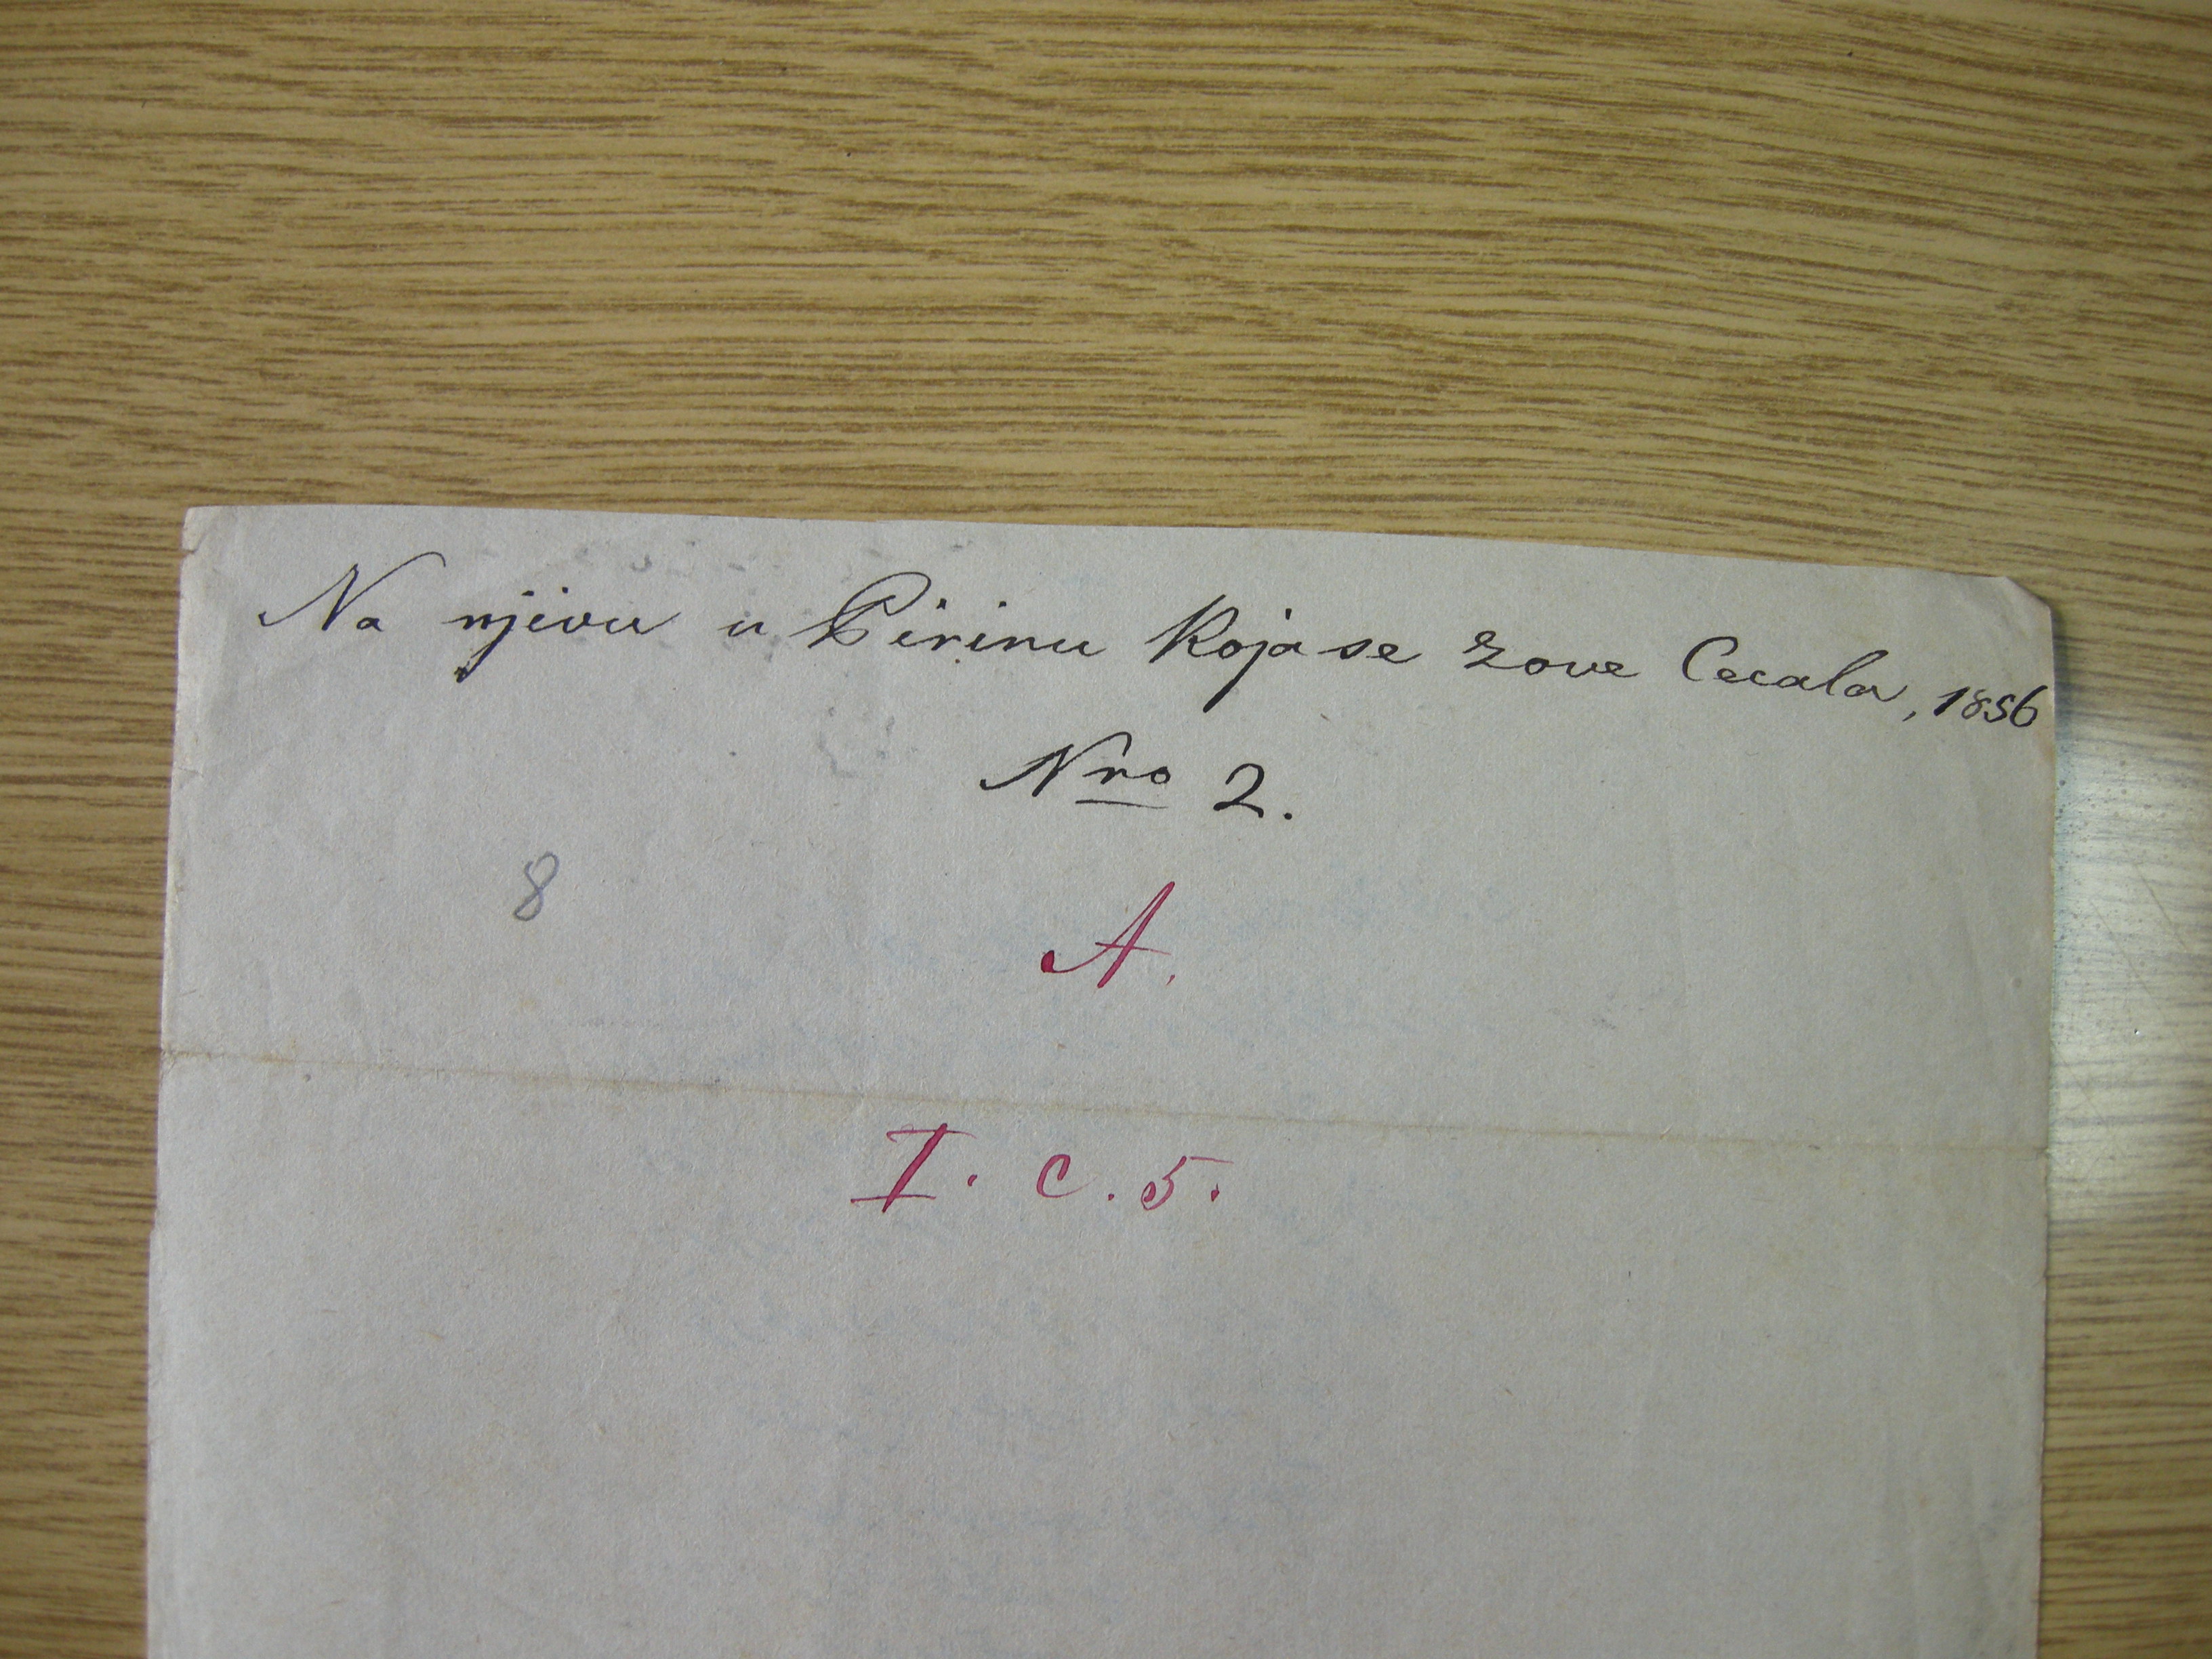 Na njivu u Pirinu Koja se zove Cecala, 1856
Nro 2.
8
A.
I. c. 5.